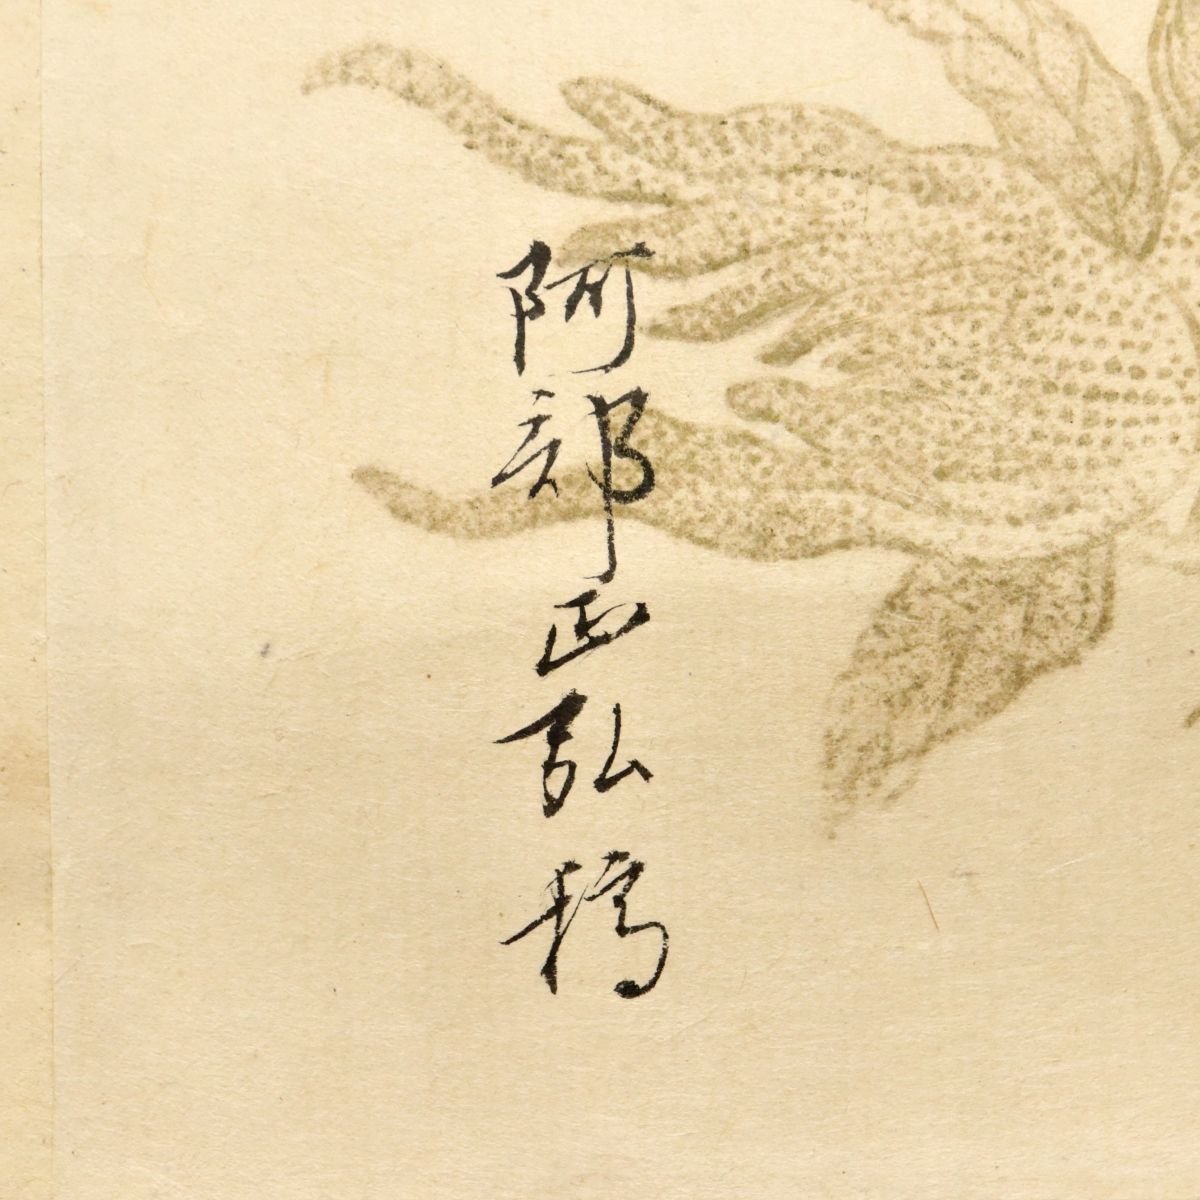 阿部正弘稿